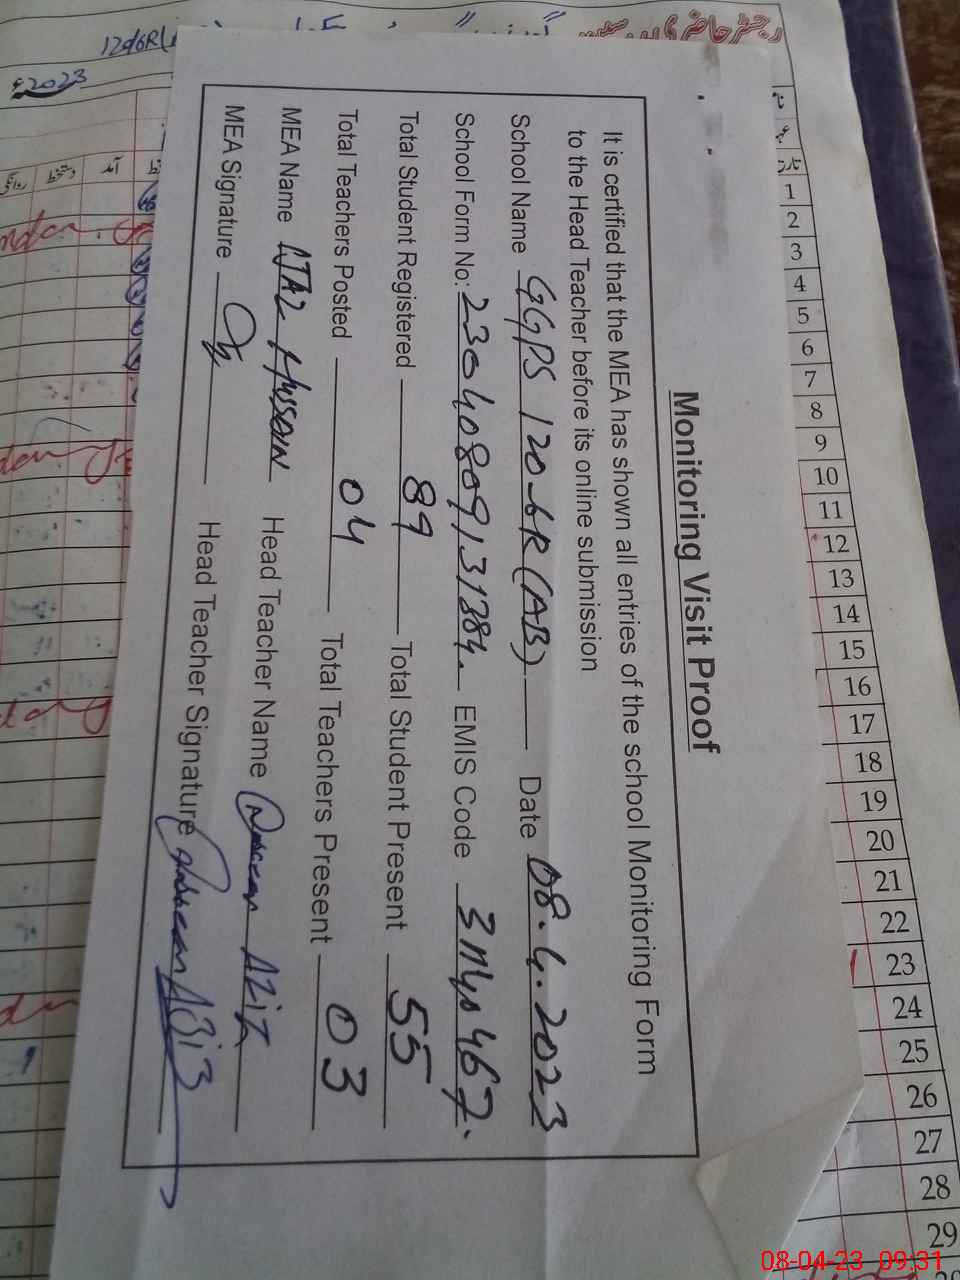 Monitoring Visit Proof
It is certified that the MEA has shown all entries of the school Monitoring Form
to the Head Teacher before its online submission
School Name GGPS 120-6R (AB) Date 08.4.2023
School Form No: 23040809131384. EMIS Code
Total Student Registered 89 Total Student Present 55
Total Teachers Posted 04 Total Teachers Present 03
MEA Name AJAZ HUSSAIN Head Teacher Name Aziz
MEA Signature Head Teacher Signature
2023
1
2
3
4
5
6
7
8
9
10
11
12
13
14
15
16
17
18
19
20
21
22
23
24
25
26
27
28
29
08-04-23 09:31